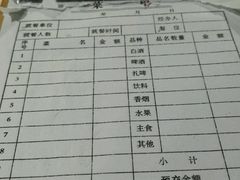 菜 单
年 月 日
就餐单位 经办人
就餐人数 就餐时间 餐位
序号 菜名 金额 品种 品名数量 金额
1 白酒
2 啤酒
3 扎啤
4 饮料
5 香烟
6 水果
7 主食
8 其他
小计